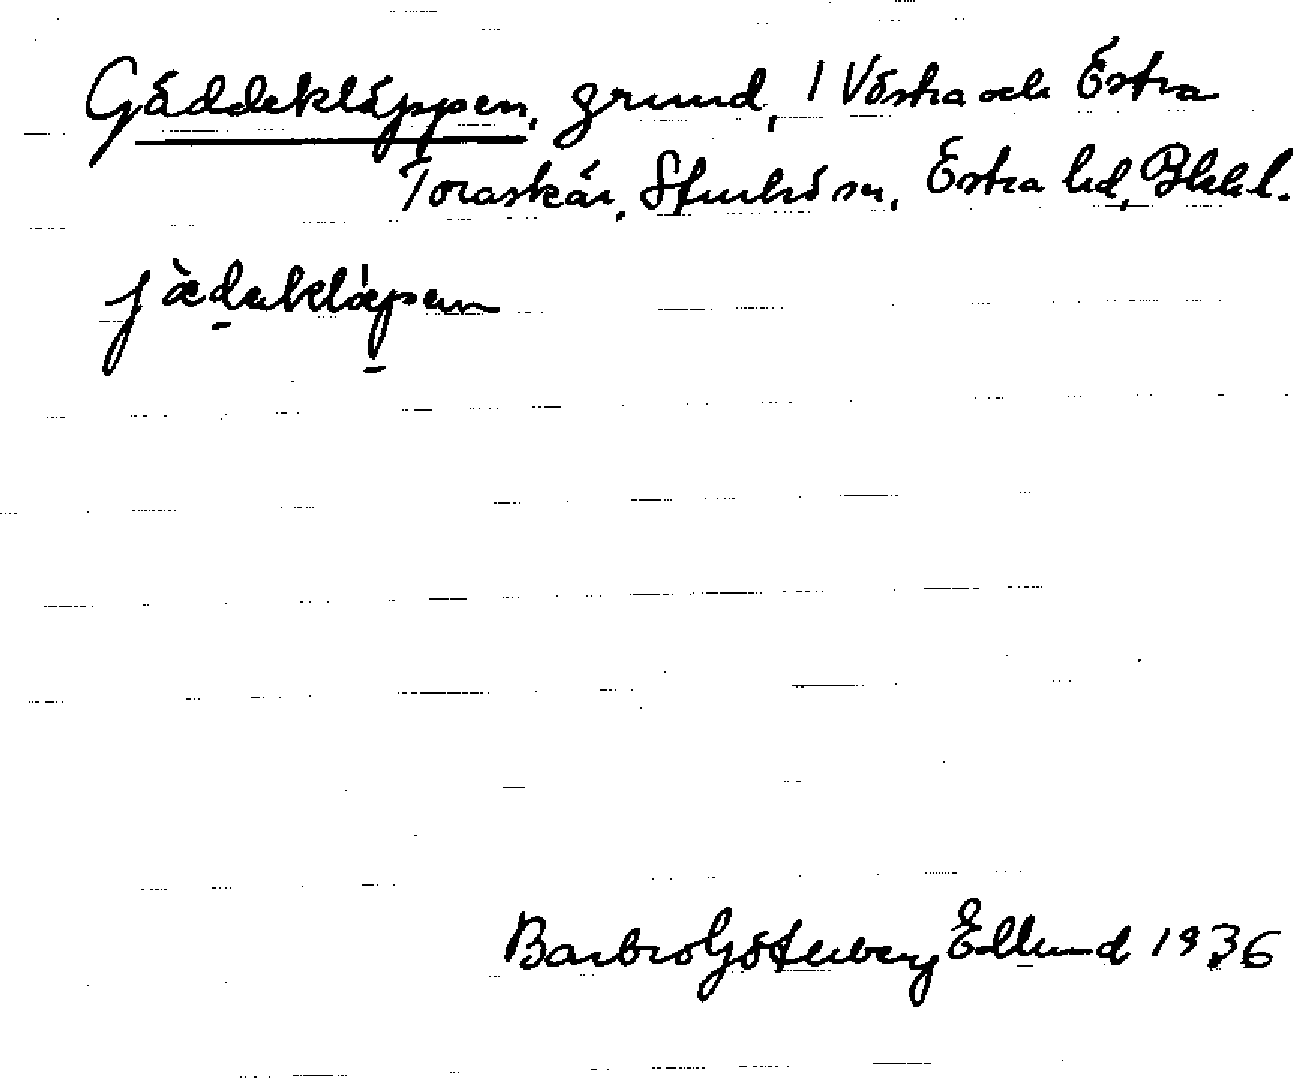 Gäddekläppen, grund, 1 Västra och Östra
Toraskär, Sturkö sn, Östra hd, Blekl.
jàdəklæ̀pən
Barbro Göterberg Edlund 1936